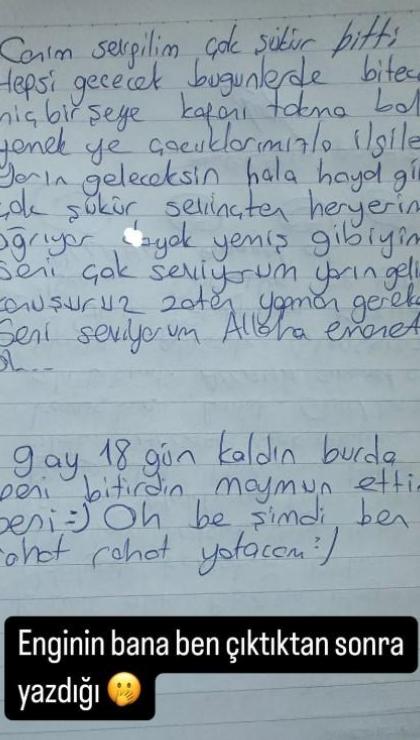 Canım sevgilim çok şükür bitti
Hepsi geçecek bugunlerde bitec
hiçbir şeye kafanı takma bol
yemek ye çocuklarımızla ilgile
Yarın geleceksin hala hayal gi
çok şükür sevinçten heryerin
ağrıyor dayak yemiş gibiyin
Seni çok seviyorum yarın geli
konuşuruz zaten yapman gerek
Seni seviyorum Allaha emanet
ol...
9 ay 18 gün kaldın burda
beni bitirdin maymun etti
beni =) Oh be şimdi ben
rahat rahat yatacam :)
Enginin bana ben çıktıktan sonra
yazdığı 🤭